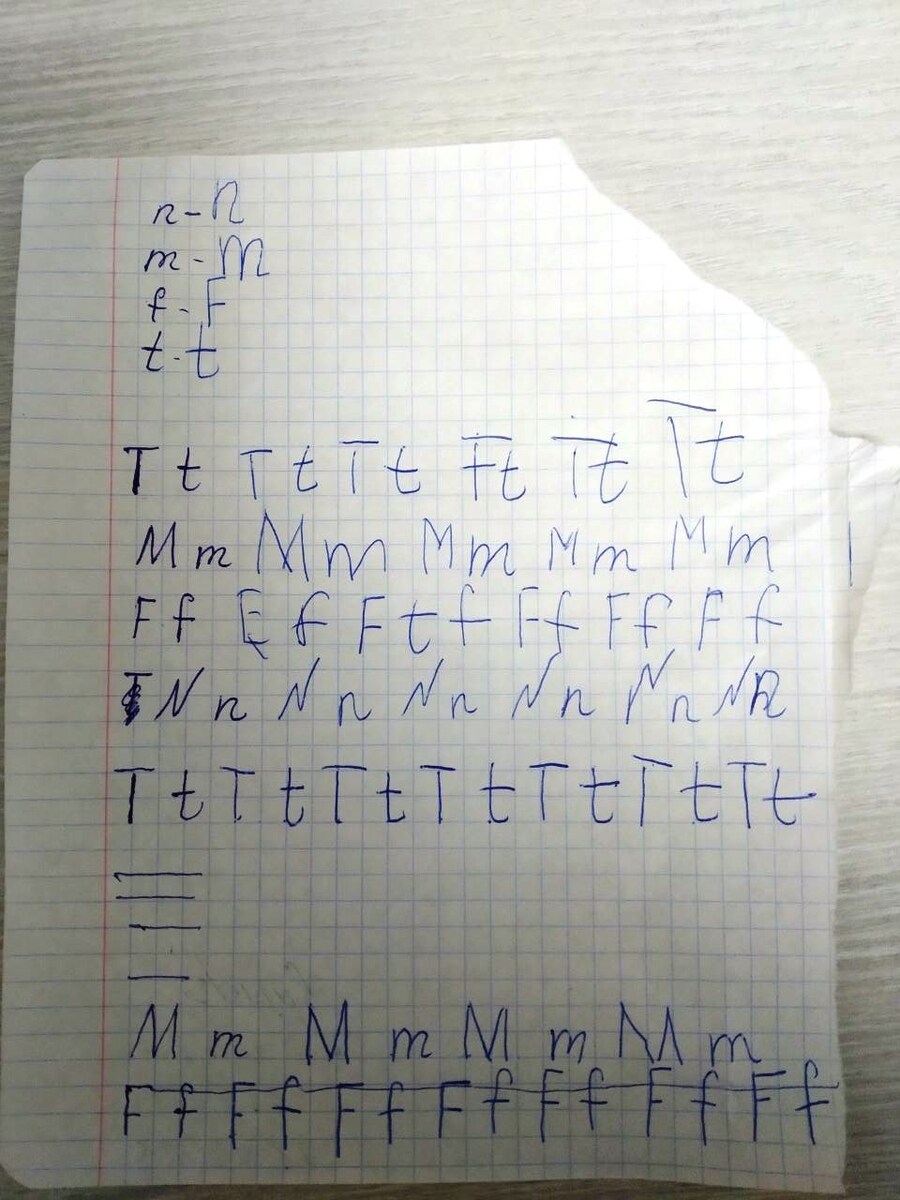 n - n
m - m
f - F
t - t
T t T t T t F t T t T t
M m M m M m M m M m
F f E f F t f F f F f F f
N n N n N n N n N n N n
T t T t T t T t T t T t T t
M m M m M m M m
F f F f F f F f F f F f F f